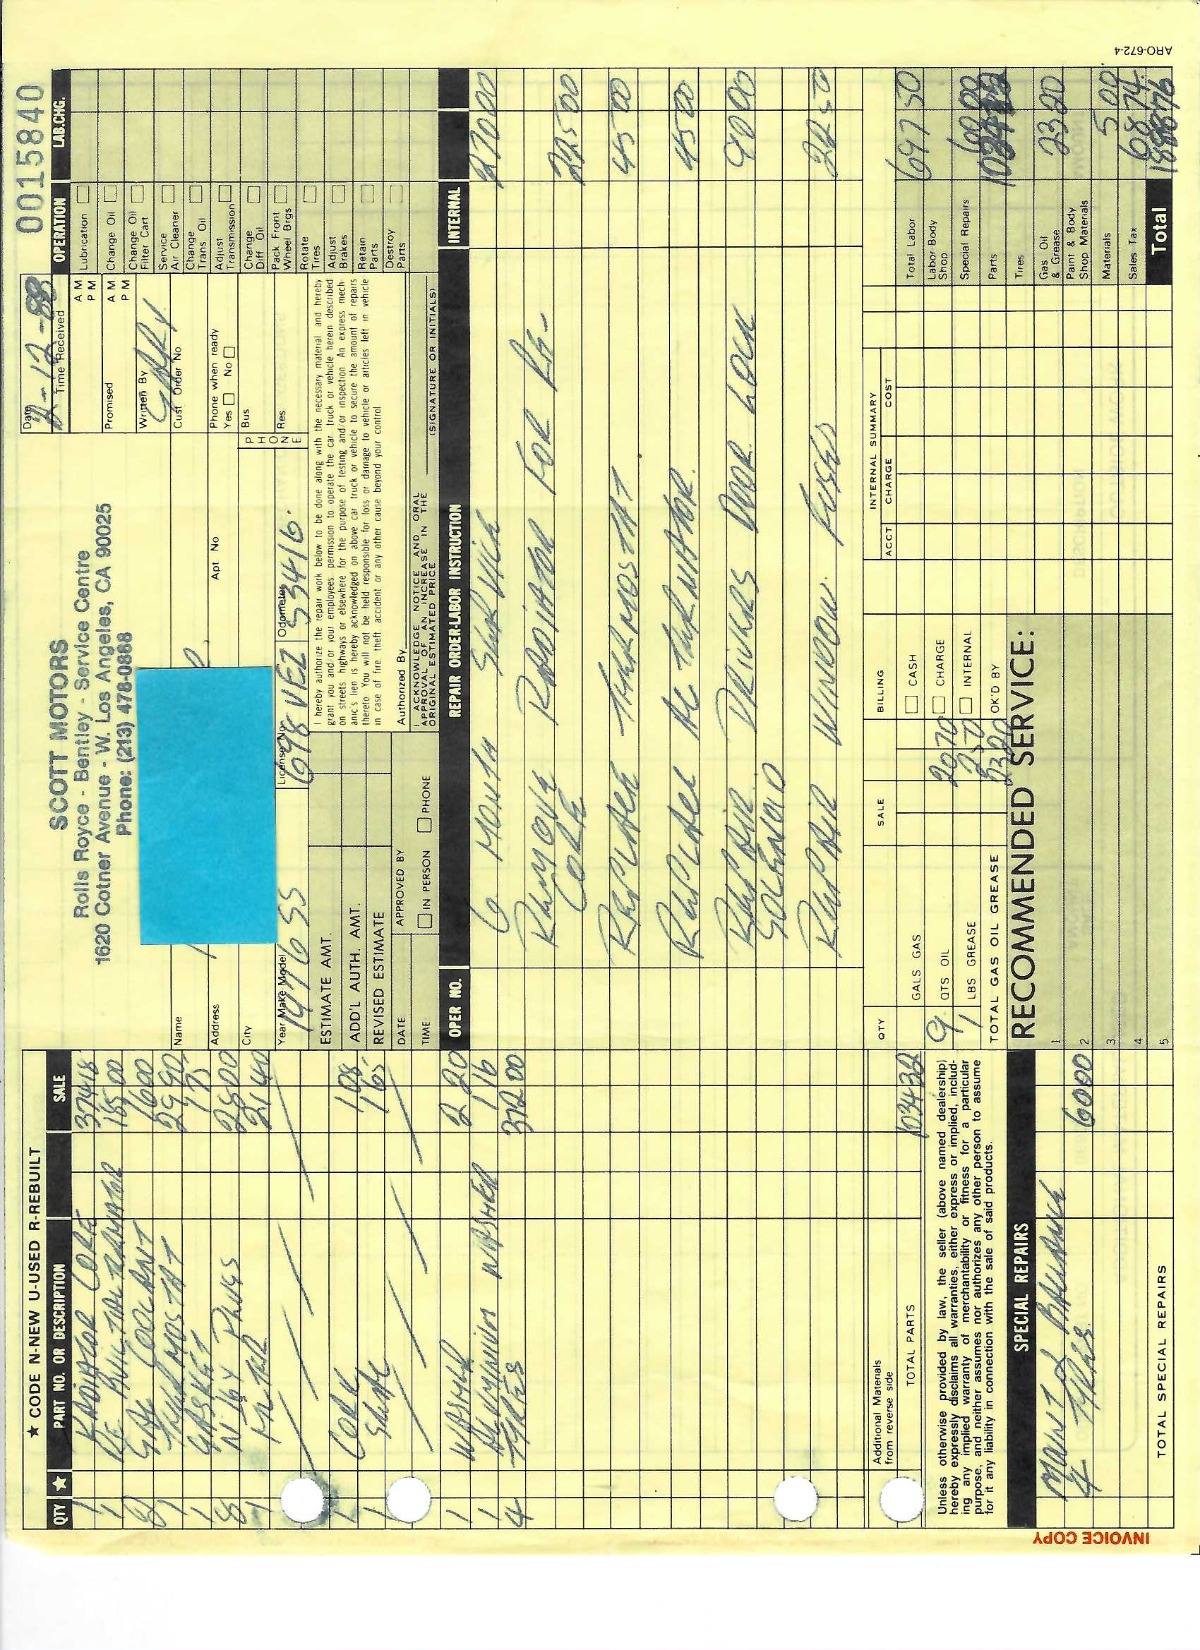 SCOTT MOTORS
Rolls Royce - Bentley - Service Centre
1620 Cotner Avenue - W. Los Angeles, CA 90025
Phone: (213) 478-0868
0015840
★ CODE N-NEW U-USED R-REBUILT
QTY ★ PART NO. OR DESCRIPTION SALE
1 RADIATOR CORE 374 18
1 RE BUILT ALTERNATOR 165 00
2 GAL COOLANT 16 00
1 THERMOSTAT 29 90
1 GASKET 1 75
8 N-16Y PLUGS 28 00
1 FILTER 21 40
1 1 08
1 1 65
1 WASHER 2 20
1 ALUMINIUM WASHER 1 16
4 TYRES 392 00
Additional Materials
from reverse side
TOTAL PARTS 1034 32
Unless otherwise provided by law, the seller (above named dealership)
hereby expressly disclaims all warranties, either express or implied, includ-
ing any implied warranty of merchantability or fitness for a particular
purpose, and neither assumes nor authorizes any other person to assume
for it any liability in connection with the sale of said products.
SPECIAL REPAIRS
MOUNT & BALANCE
4 TYRES. 60 00
TOTAL SPECIAL REPAIRS
INVOICE COPY
Name
Address Apt No
City
PHONE Bus
Res
Year Make Model 1976 SS
License No 698 VEZ
Odometer 53416.
Date 2-12-88
Time Received A M P M
Promised A M P M
Written By GARY
Cust Order No
Phone when ready
Yes □ No □
OPERATION LAB.CHG.
Lubrication □
Change Oil □
Change Oil □
Filter Cart
Service □
Air Cleaner
Change □
Trans Oil
Adjust □
Transmission
Change □
Diff Oil
Pack Front □
Wheel Brgs
Rotate □
Tires
Adjust □
Brakes
Retain □
Parts
Destroy □
Parts
ESTIMATE AMT.
ADD'L AUTH. AMT.
REVISED ESTIMATE
DATE APPROVED BY
TIME □ IN PERSON □ PHONE
I hereby authorize the repair work below to be done along with the necessary material and hereby
grant you and/or your employees, permission to operate the car truck or vehicle herein described
on streets highways or elsewhere for the purpose of testing and/or inspection An express mech-
anic's lien is hereby acknowledged on above car truck or vehicle to secure the amount of repairs
thereto You will not be held responsible for loss or damage to vehicle or articles left in vehicle
in case of fire theft accident or any other cause beyond your control
Authorized By
I ACKNOWLEDGE NOTICE AND ORAL
APPROVAL OF AN INCREASE IN THE
ORIGINAL ESTIMATED PRICE (SIGNATURE OR INITIALS)
OPER NO. REPAIR ORDER-LABOR INSTRUCTION INTERNAL
6 MONTH SERVICE 270 00
REMOVE RADIATOR FOR RE-
CORE 225 00
REPLACE THERMOSTAT. 45 00
REPLACE ALTERNATOR. 45 00
REPAIR DRIVERS DOOR LOCK 90 00
SOLENOID
REPAIR WINDOW FUSES 22 50
QTY SALE BILLING
GALS GAS □ CASH
9 QTS OIL 20 70 □ CHARGE
1 LBS GREASE 2 50 □ INTERNAL
TOTAL GAS OIL GREASE 23 20 OK'D BY
INTERNAL SUMMARY
ACCT CHARGE COST
RECOMMENDED SERVICE:
1
2
3
4
5
Total Labor 697 50
Labor Body
Shop
Special Repairs 60 00
Parts
Tires
Gas Oil
& Grease 23 20
Paint & Body
Shop Materials
Materials 5 00
Sales Tax 68 74
Total 1888 76
ARO-672-4